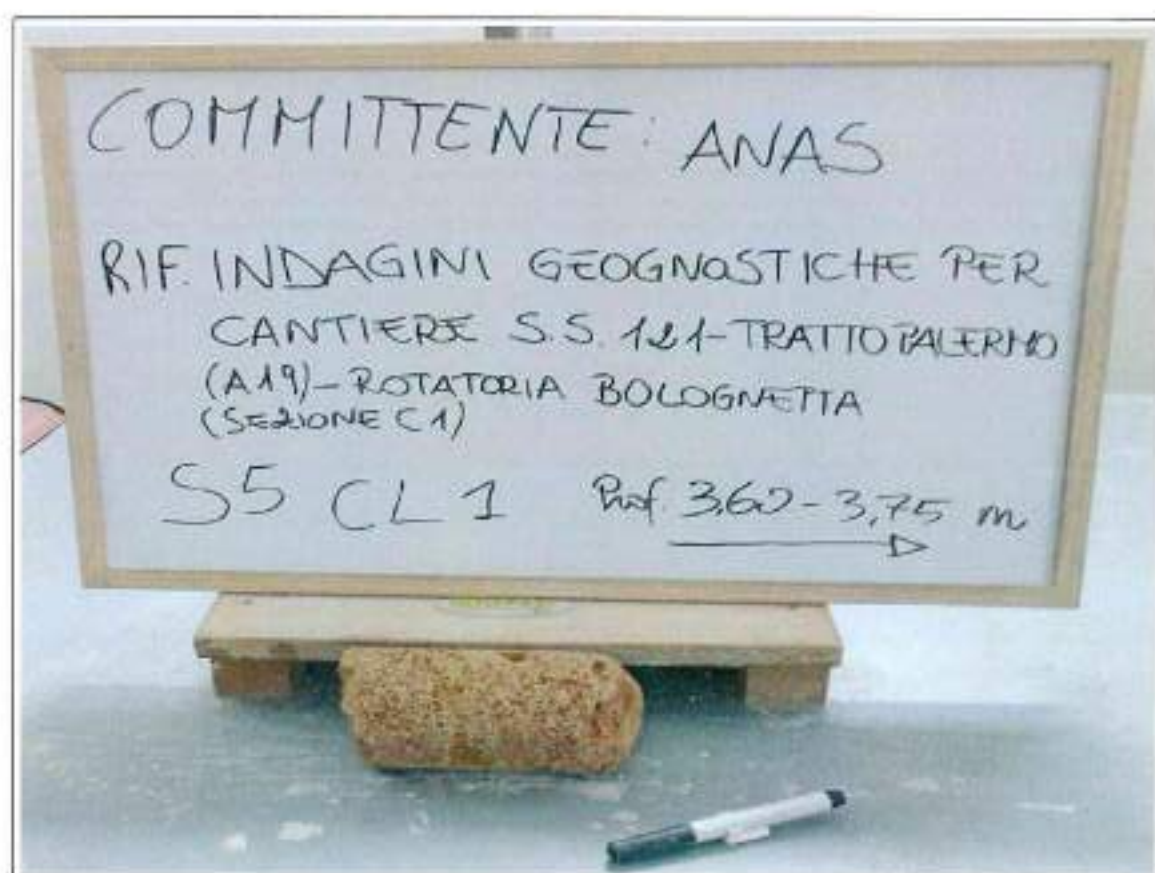 COMMITTENTE: ANAS
RIF. INDAGINI GEOGNOSTICHE PER
CANTIERE S.S. 121-TRATTO PALERMO
(A19)-ROTATORIA BOLOGNETTA
(SEZIONE C1)
S5 CL1 Prof. 3,60-3,75 m